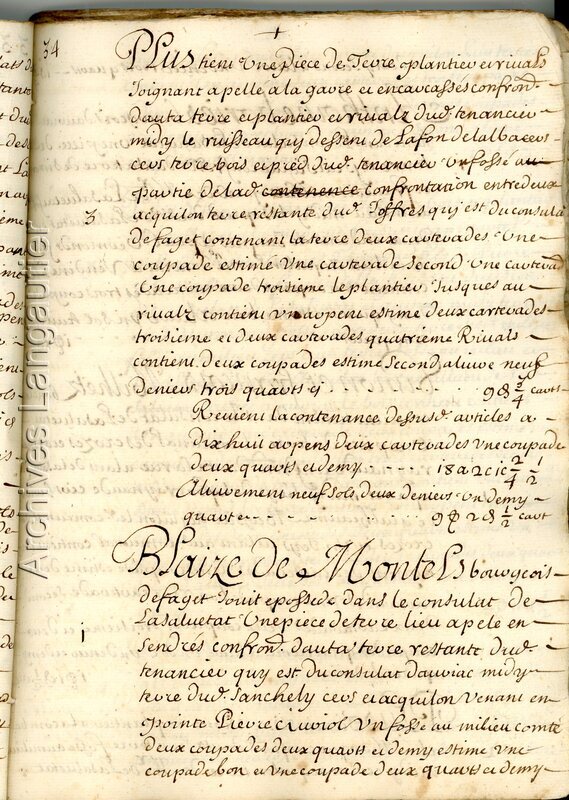 34
PLus tient Une piece de Terre plantier et rivals
Joignant apelle a la gavre et encarcasses confron.
dauta terre et plantier et rivalz dud. tenancier
midy le ruisseau qui dessent de Lafon de lalba cers
cers terre bois et pred dud. tenancier Un fossé au
partie de lad. contenence confrontation entre deux
3
acquilon terre restante du. Joffres qui est du consulat
de faget contenant la terre deux carterades Une
coupade estimé Une carterade Second Une carterade
Une coupade troisieme le plantier Jusques au
rivalz contient Un arpent estimé deux carterades
troisieme et deux carterades quatrieme Rivals
contient deux coupades estimé Second alivre neuf
deniers trois quarts cy . . . . 9 d 3/4 carts
Revient la contenance dessus d. articles a
dix huit arpens deux carterades Une coupade
deux quarts et demy . . . . 18 a 2 c 1 c 2/4 1/2
Alivrement neuf sols deux deniers Un demy
quart . . . . 9 ꝑ 2 d 1/2 cart
BLaize de MonteLs bourgeois
de faget Jouit et possede dans le consulat de
1
Lasaluetat Une piece de terre lieu apele en
Sendrés confron. dauta terre restante dud.
tenancier quy est du consulat dauriac midy
terre dud. Sanchely cers et acquilon Venant en
pointe Pierre cruviol Un fossé au milieu comté
deux coupades deux quarts et demy estime Une
coupade bon et Une coupade deux quarts et demy
Archives Langautier